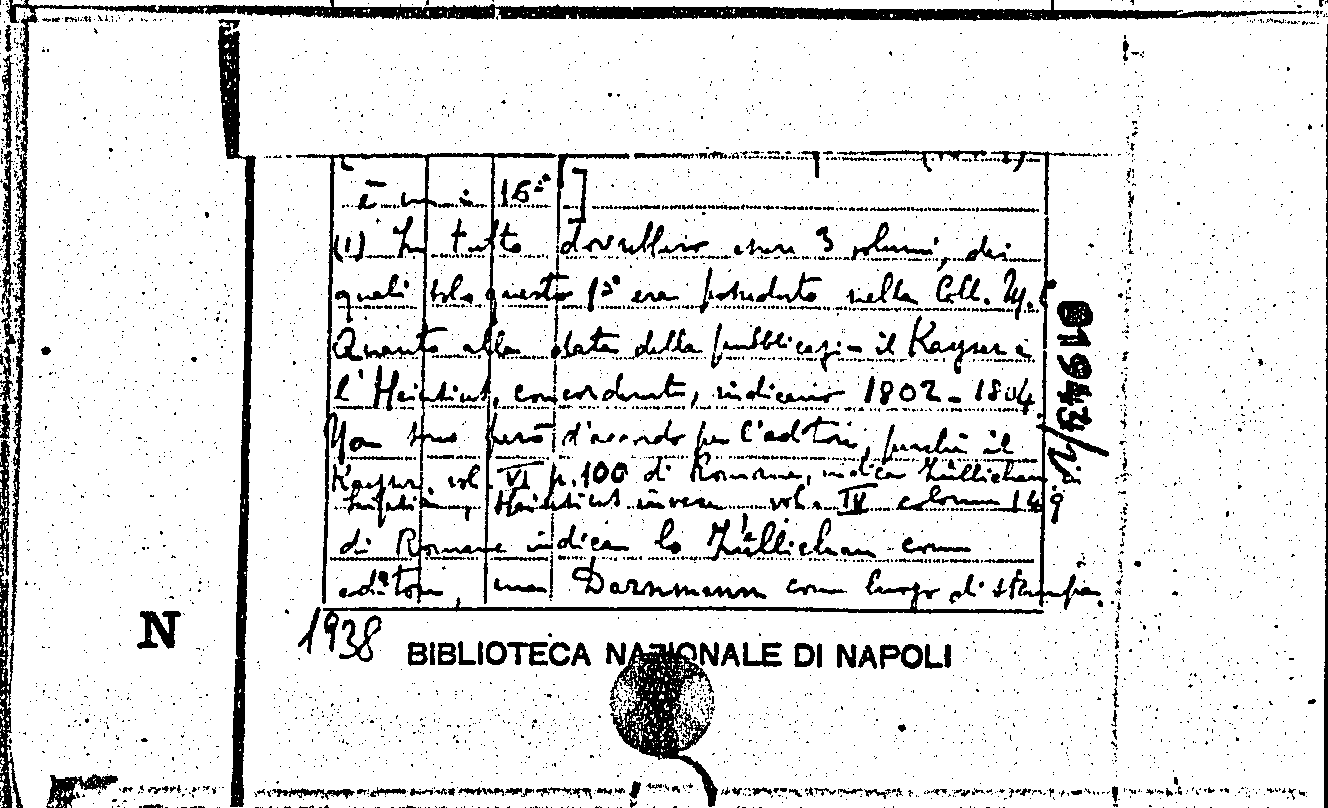 è in 16°]
(1) In tutto dovrebbero essere 3 volumi, dei
quali solo questo 1° era posseduto nella Coll.
Quanto alla data della pubblicaz. il Kayser e
l'Heinsius, concordando, indicano 1802-1804.
Non sono però d'accordo per l'editore, perchè il
Kayser, vol. VI p. 100 di Romane, indica Züllichau
Heinsius invece vol. IV colonna 149
di Romane indica lo Züllichau come
editore, ma Darnmann come luogo di stampa.
1938
BIBLIOTECA NAZIONALE DI NAPOLI
N
01943/2